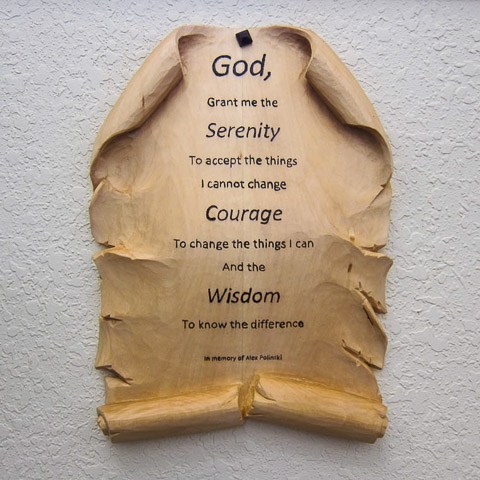 God,
Grant me the
Serenity
To accept the things
I cannot change
Courage
To change the things I can
And the
Wisdom
To know the difference
In memory of Alex Polinski